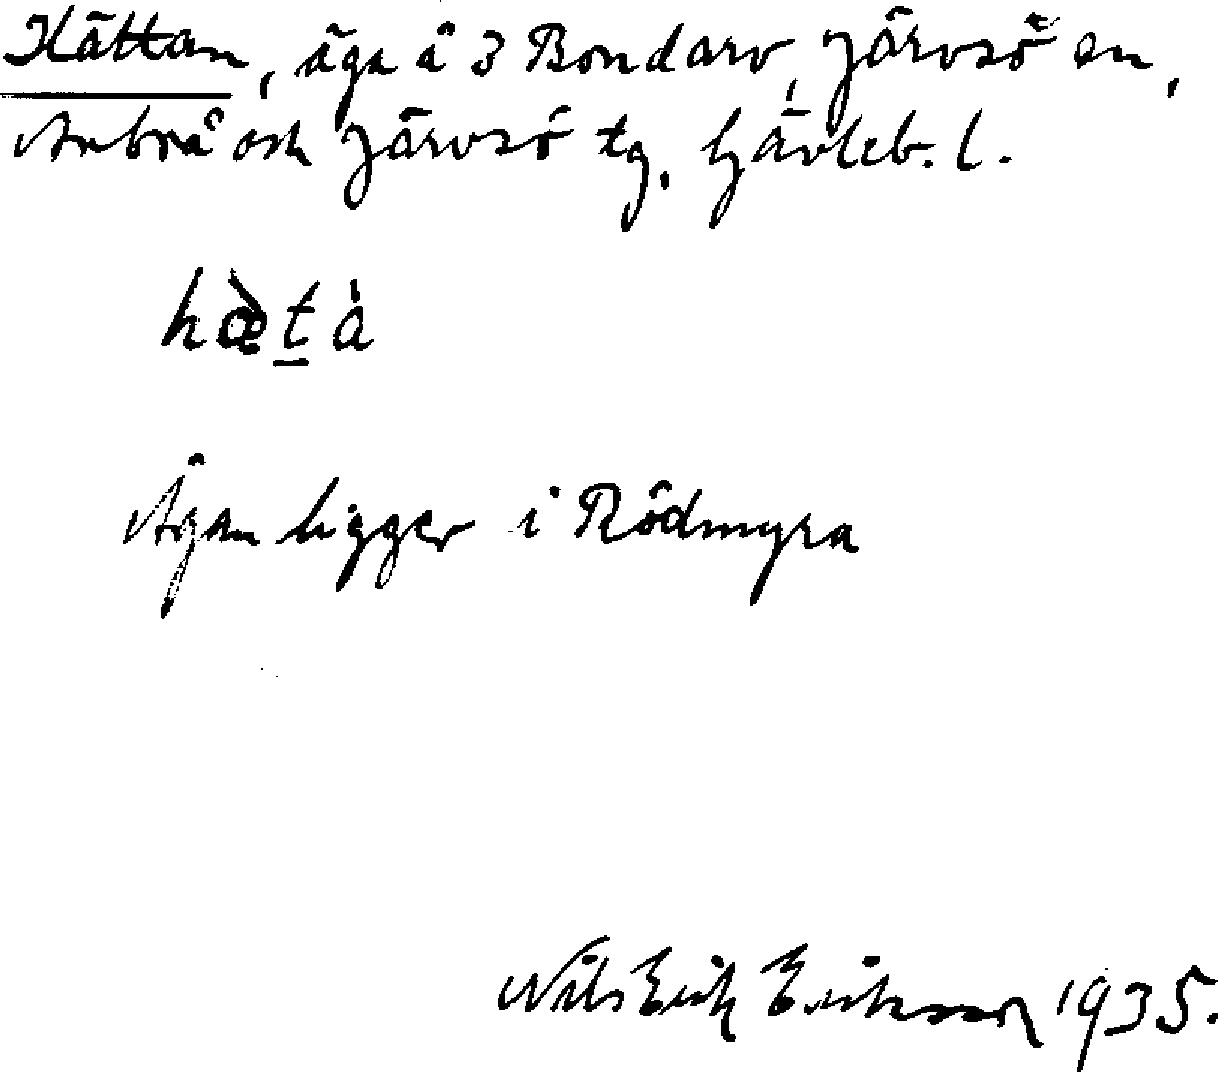 Hättan, äga å 3 Bondarv, Järvsö sn,
Arbrå och Järvsö tg, Gävleb. l.
hæ̀tà
Ägan ligger i Rödmyra
Nils Erik Eriksson 1935.